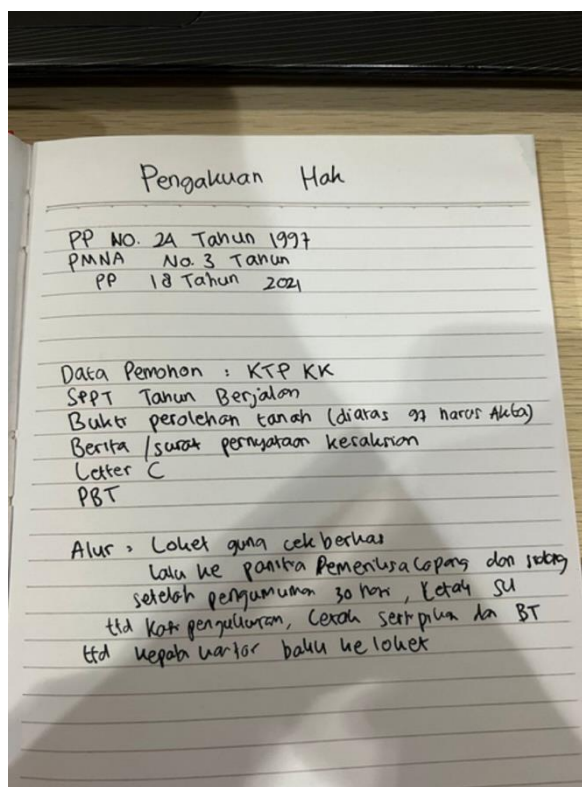 Pengakuan Hak
PP NO. 24 Tahun 1997
PMNA No. 3 Tahun
PP 18 Tahun 2021
Data Pemohon : KTP KK
SPPT Tahun Berjalan
Bukti perolehan tanah (diatas 97 harus Akta)
Berita / surat pernyataan kesaksian
Letter C
PBT
Alur : Loket guna cek berkas
lalu ke panitia Pemeriksa Lapang dan sidang
setelah pengumuman 30 hari, Cetak SU
ttd Kasi pengukuran, Cetak sertipikat dan BT
ttd kepala kantor balik ke loket